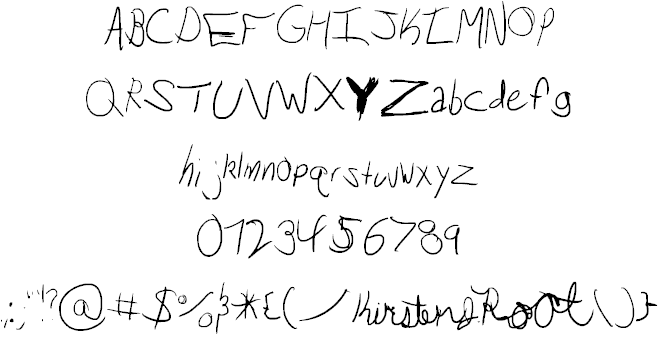 ABCDEFGHIJKLMNOP
QRSTUVWXYZabcdefg
hijklmnopqrstuvwxyz
0123456789
.;,:"'!?@#$%&*{(/KirstensRoot\)}